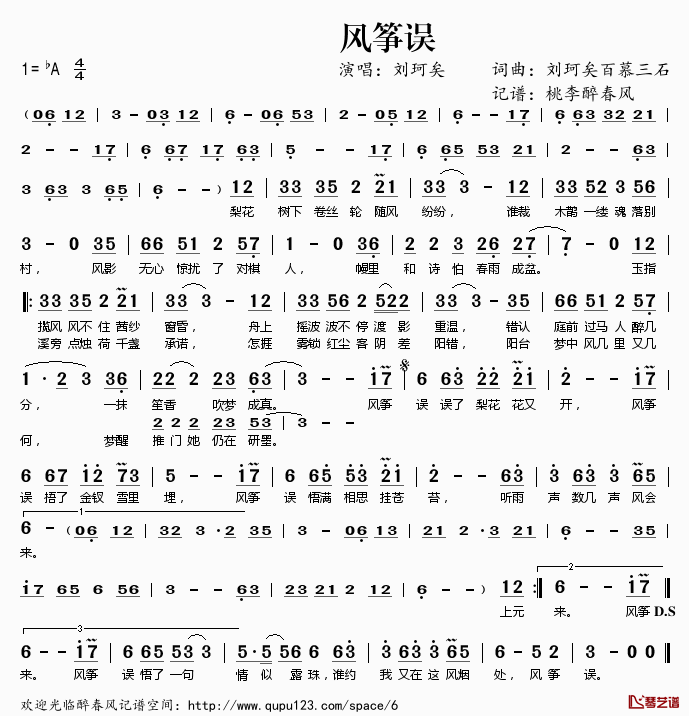 风筝误
1=♭A 4/4 演唱：刘珂矣 词曲：刘珂矣百慕三石
记谱：桃李醉春风
（06 12 | 3 - 03 12 | 6 - 06 53 | 2 - 05 12 | 6 - - 17 | 6 63 32 21 |
2 - - 17 | 6 67 17 63 | 5 - - 17 | 6 65 53 21 | 2 - - 63 |
3 63 3 65 | 6 - ）12 | 33 35 2 21 | 33 3 - 12 | 33 52 3 56 |
梨花 树下 卷丝 轮 随风 纷纷， 谁裁 木鹊 一缕 魂 落别
3 - 0 35 | 66 51 2 57 | 1 - 0 36 | 2 23 3 26 | 27 7 - 0 12 |
村， 风影 无心 惊扰 了 对棋 人， 幔里 和 诗 怕 春雨 成盆。 玉指
‖: 33 35 2 21 | 33 3 - 12 | 33 56 2 522 | 33 3 - 12 | 33 53 2 57 |
揽风 风不 住 茜纱 窗昏， 舟上 摇波 波不 停 渡 影 重温， 错认 庭前 过马 人 醉几
溪旁 点烛 荷 千盏 承诺， 怎捱 雾锁 红尘 客 阴 差 阳错， 阳台 梦中 风几 里 又几
1 · 2 3 36 | 22 2 23 63 | 3 - - 17 | 6 63 22 21 | 2 - - 17 |
分， 一抹 笙香 吹梦 成真。 风筝 误 误了 梨花 花又 开， 风筝
2 22 23 3 - -
何， 梦醒 推 门她 仍在 研墨。
6 67 12 73 | 5 - - 17 | 6 65 53 21 | 2 - - 63 | 3 63 3 65 |
误 捂了 金钗 雪里 埋， 风筝 误 悟满 相思 挂苍 苔， 听雨 声 数几 声 风会
1
6 - （06 12 | 32 3 · 2 35 | 3 - - 12 | 6 - 06 13 | 21 2 · 3 21 | 6 - - 35 |
来。
2
17 65 6 56 | 3 - - 63 | 23 21 2 12 | 6 - - ）12 :‖ 6 - - 17 ‖
上元 来。 风筝 D.S
3
6 - - 17 | 6 65 53 3 | 5·5 56 6 63 | 6 63 63 63 | 6 - 5 2 | 6 - - - ‖
来。 风筝 误 悟了 一句 情 似 露 珠，谁约 我 又在 这 风烟 处， 风 筝 误。
欢迎光临醉春风记谱空间：http://www.qupu123.com/space/6
琴艺谱